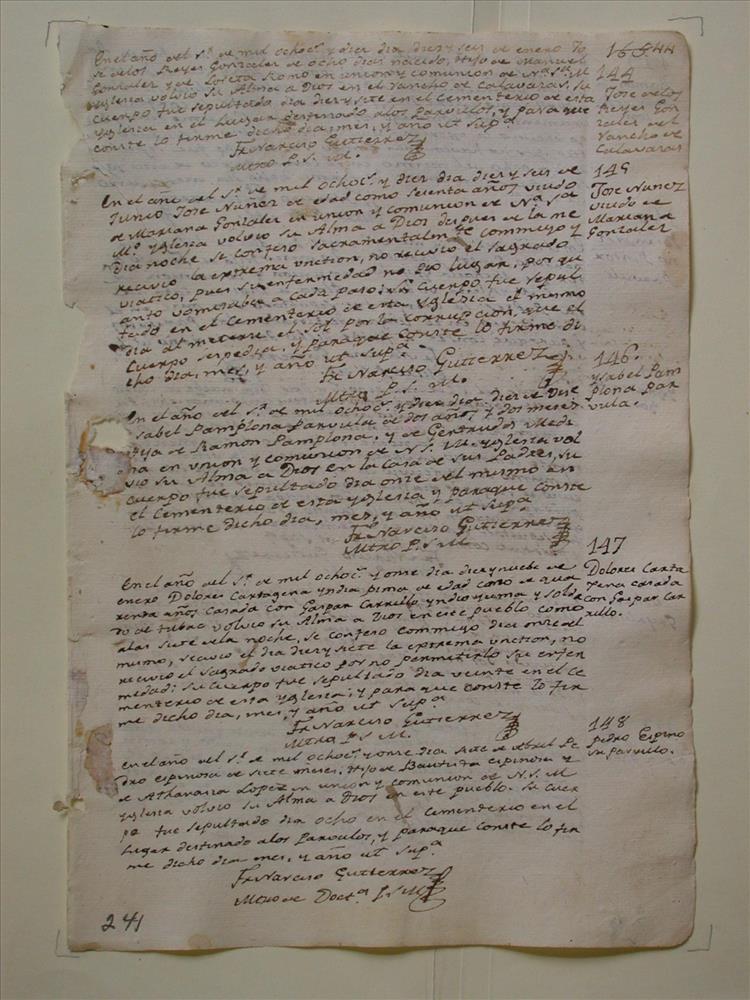 En el año del S.r de mil ochoc.s y diez dia diez y seis de enero Jo
se delos Reyes Gonzalez de ocho dias nacido, Hijo de Manuel
Gonzalez y de Loreta Romo en union y comunion de N.a S.ta M.
Yglesia volvio su Alma a Dios en el Rancho de Calavasas, su
cuerpo fue sepultado dia diez y siete en el cementerio de esta
Yglesia en el Lugar destinado alos Parvulos, y para que
conste lo firme dicho dia, mes, y año ut sup.a
Fr. Narciso Gutierrez
Mtro P. S. M.
144
Jose delos
Reyes Gon
zalez del
Rancho de
Calavasas
En el año del S.r de mil ochoc.s y diez dia diez y seis de
Junio Jose Nuñez de edad como setenta años viudo
de Mariana Gonzalez en union y comunion de N.a S.ta
M.e Yglesia volvio su Alma a Dios despues de la me
dia noche se confeso sacramentalm.te commigo y
recivio la extrema unction, no recivio el sagrado
viatico, pues su enfermedad no dio lugar, por qu
anto vomitaba a cada paso; su cuerpo fue sepul
tado en el cementerio de esta Yglesia el mismo
dia al meterse el Sol por la corrupcion, que el
cuerpo despedia, y paraque conste lo firme di
cho dia, mes, y año ut sup.a
Fr. Narciso Gutierrez
Mtro P. S. M.
145
Jose Nunez
viudo de
Mariana
Gonzalez
En el año del S.r de mil ochoc.s y diez dia diez de
Ysabel Pamplona Parvula de dos años y dos meses
Hija de Ramon Pamplona, y de Gertrudis Medi
na en union y comunion de N. S. M. Yglesia vol
vio su Alma a Dios en la Casa de sus Padres, su
cuerpo fue sepultado dia onse del mismo en
el Cementerio de esta Yglesia y paraque conste
lo firme dicho dia, mes, y año ut sup.a
Fr. Narciso Gutierrez
Mtro P. S. M.
146
Ysabel Pam
plona par
vula.
En el año del S.r de mil ochoc.s y onse dia diez y nuebe de
enero Dolores Cartagena yndia pima de edad como de qua
renta años, casada con Gaspar Carrillo yndio yuma y solda
do de Tubac volvio su Alma a Dios en este pueblo como
alas siete dela noche, se confeso commigo dia onse del
mismo, recivio el dia diez y siete la extrema unction, no
recivio el sagrado viatico por no permitirlo su enfer
medad: su cuerpo fue sepultado dia veinte en el Ce
menterio de esta Yglesia: y para que conste lo fir
me dicho dia, mes, y año ut sup.a
Fr. Narciso Gutierrez
Mtro P. S. M.
147
Dolores Carta
gena casada
con Gaspar Car
rillo.
En el año del S.r de mil ochoc.s y onse dia siete de Abril Pe
dro espinosa de siete meses, Hijo de Bautista espinosa y
de Athanasia Lopez en union y comunion de N. S. M
Yglesia volvio su Alma a Dios en este pueblo. su cuer
po fue sepultado dia ocho en el cementerio en el
Lugar destinado alos Parvulos, y paraque conste lo fir
me dicho dia, mes, y año ut sup.a
Fr. Narciso Gutierrez
Mtro de Doct.a P. S. M.
148
Pedro Espino
sa parvulo.
241